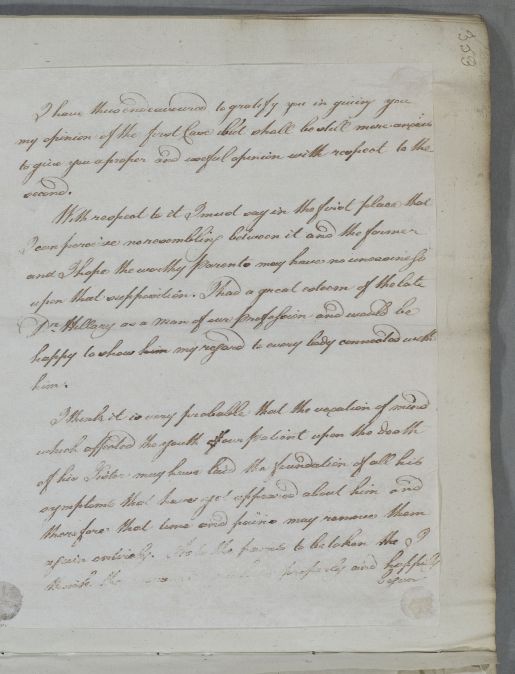 353
I have thus endeavoured to gratify you in giving you
my opinion of the first Case but shall be still more anxious
to give you a proper and useful opinion with respect to the
second.
With respect to it I must say in the first place that
I can perceive no resembling between it and the former
and I hope the worthy Parents may have no uneasiness
upon that supposition. I had a great esteem of the late
Dr. Hillary as a man of our profession and would be
happy to show him my regard to every body connected with
him.
I think it is very probable that the vexation of mind
which affected the youth our patient upon the death
of his Sister may have laid the foundation of all his
symptoms that have yet appeared about him and
therefore that time and pains may remove them
again entirely. to be taken the
the properly and happily
begun